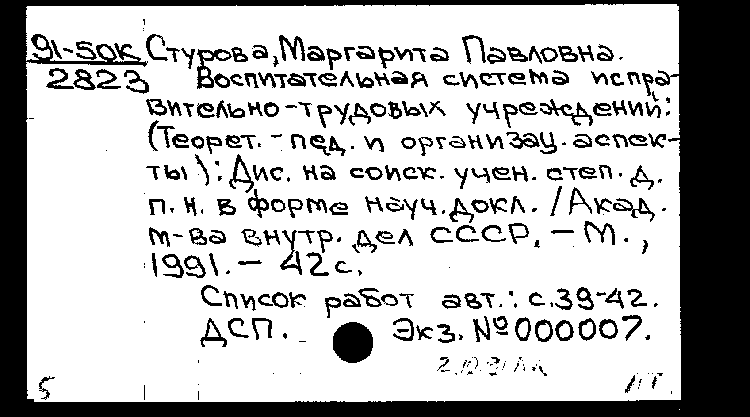 91-50К Стурова, Маргарита Павловна.
2823 Воспитательная система испра-
вительно-трудовых учреждений:
(Теорет.-пед. и организац. аспек-
ты): Дис. на соиск. учен. степ. д.
п. н. в форме науч. докл. / Акад.
м-ва внутр. дел СССР. – М.,
1991. – 42 с.
Список работ авт.: с. 39-42.
ДСП. Экз. № 000007.
5